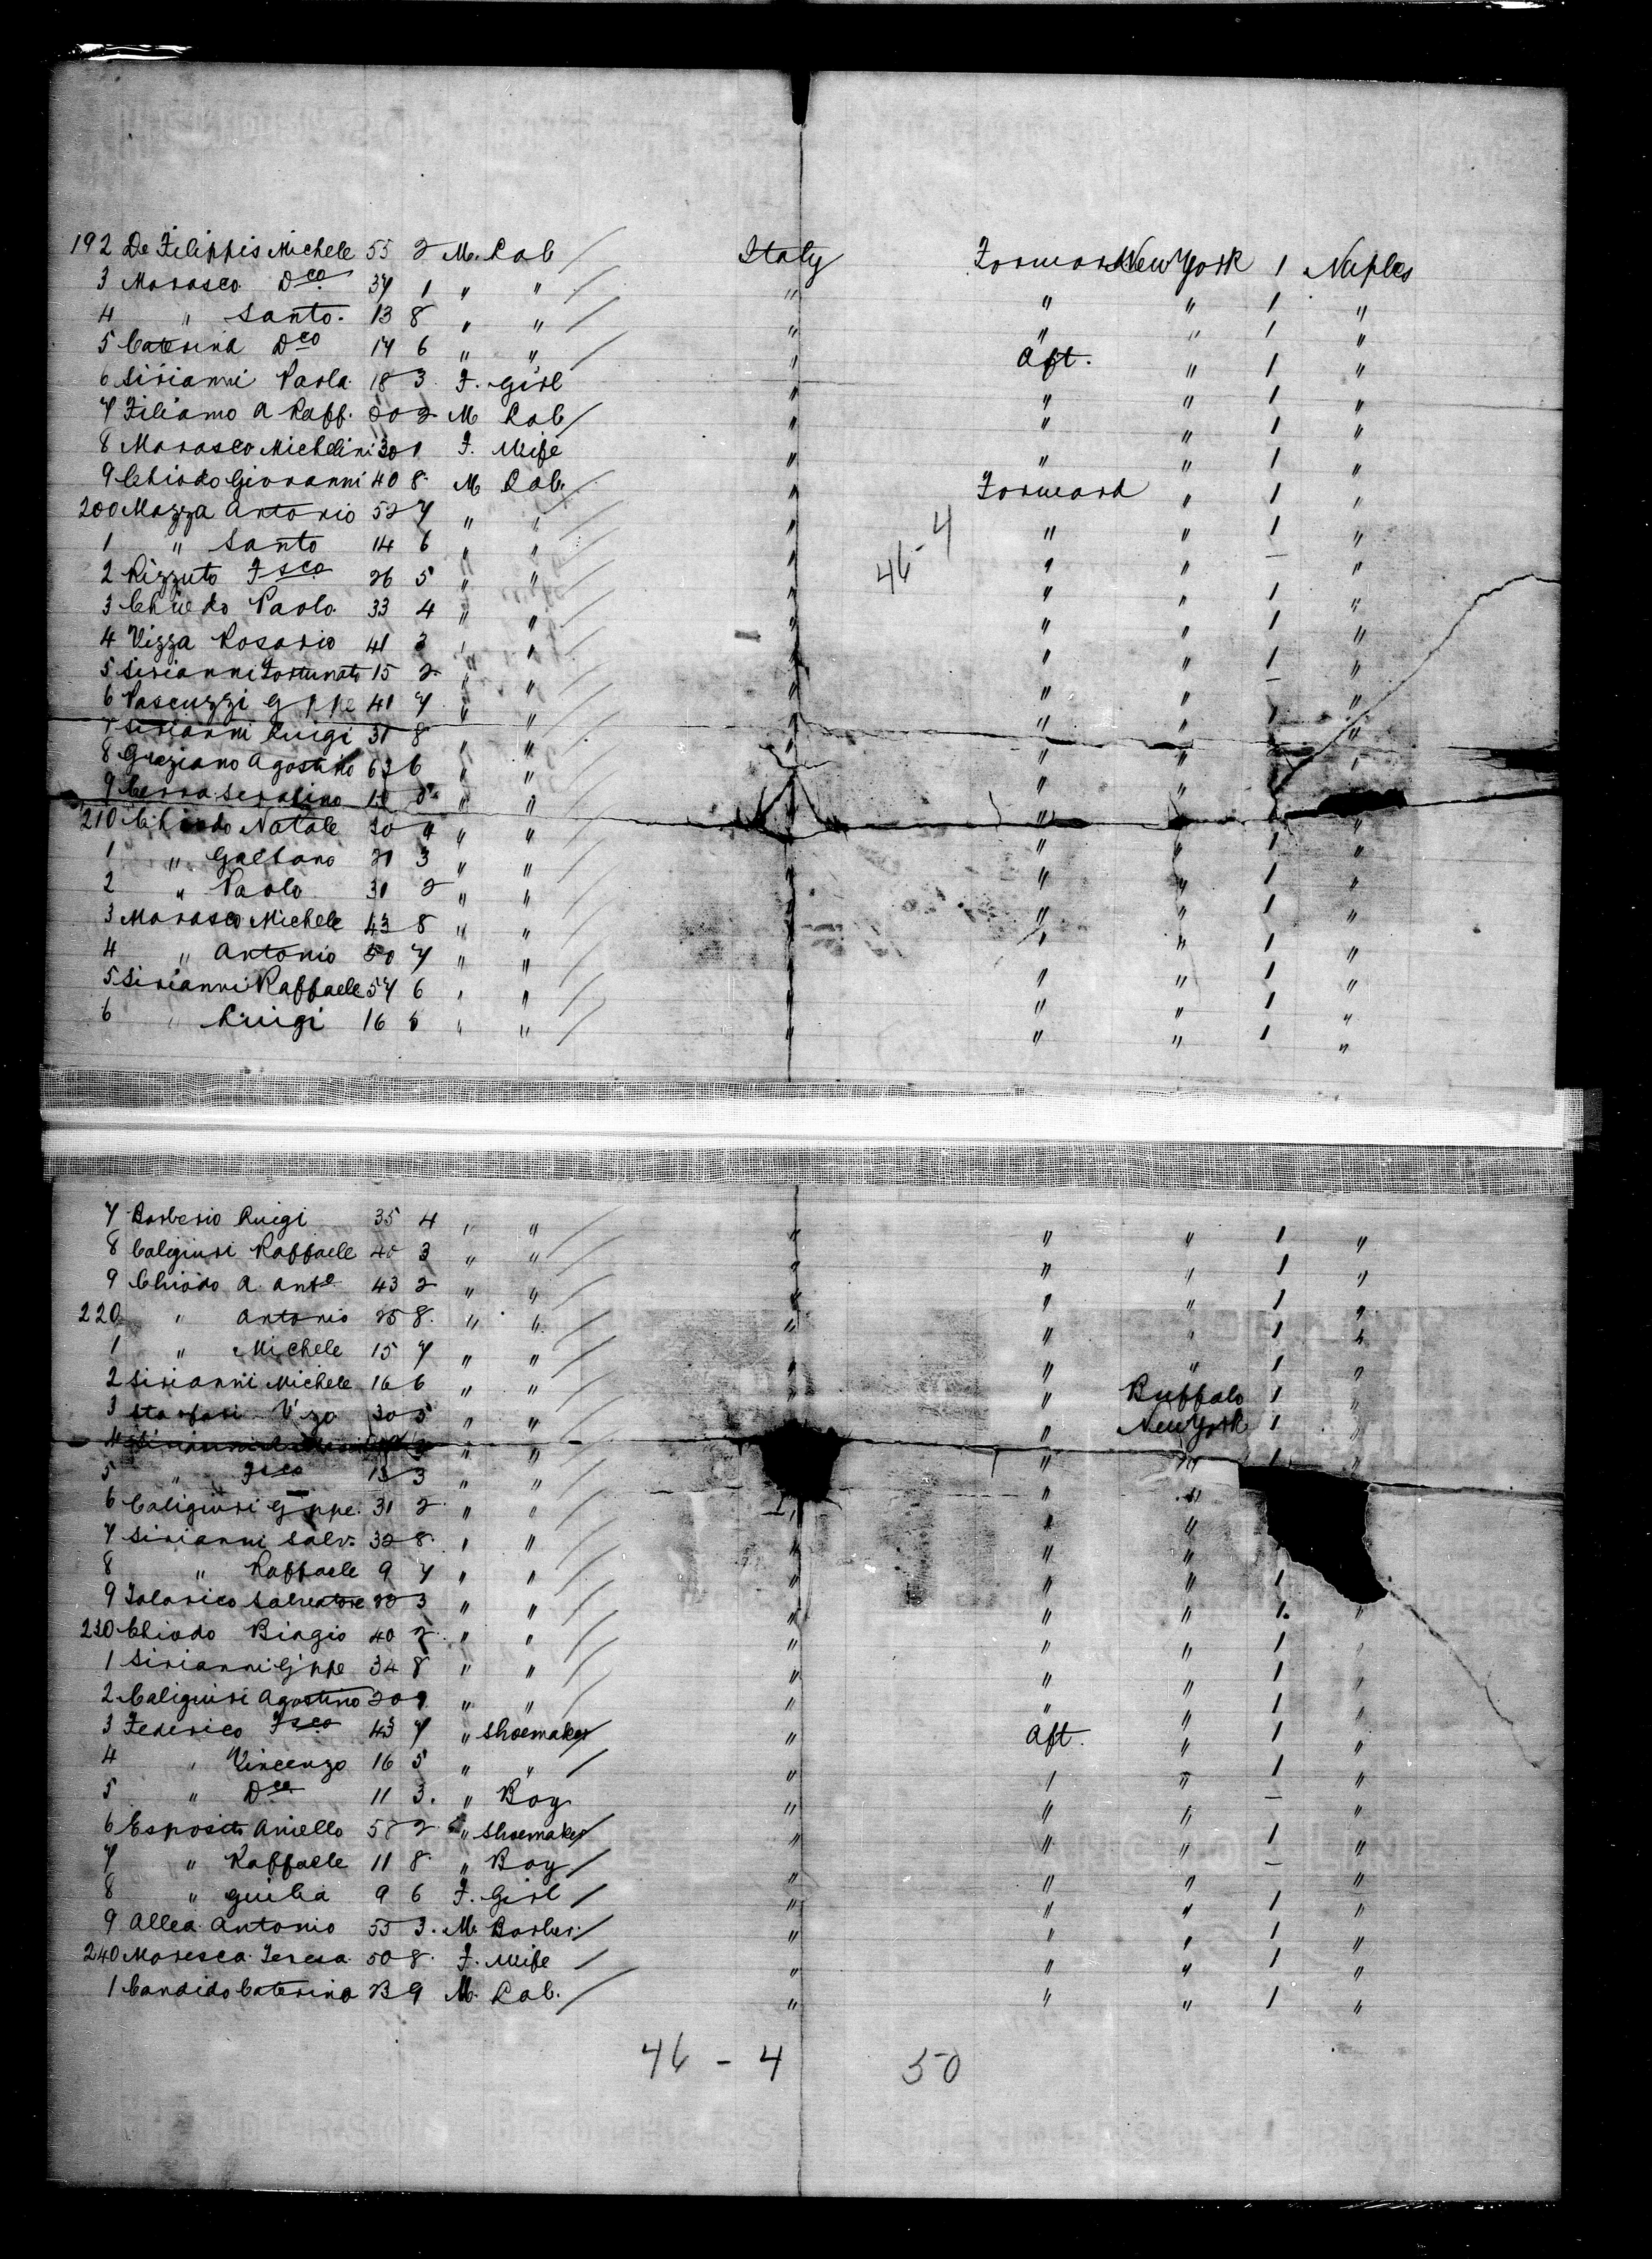 192 De Filippis Michele 55 2 M. Lab / Italy Forward New York 1 Naples
3 Marasco Dco 37 1 " " / " " " 1 "
4 " Santo. 13 8 " " / " " " 1 "
5 Caterina Dco 17 6 " " / " Aft. " 1 "
6 Sirianni Paola 18 3. F. Girl " " " 1 "
7 Filiamo A Raff. 2 M Lab / " " " 1 "
8 Marasco Michelini 30 1 F. Wife " " " 1 "
9 Chiodo Giovanni 40 8. M Lab. / " Forward " 1 "
200 Mazza Antonio 52 7 " " / " " " 1 "
1 " Santo 14 6 " " / " " " — "
46-4
2 Rizzuto Fsco 26 5 " " / " " " 1 "
3 Chiodo Paolo 33 4 " " / " " " 1 "
4 Vizza Rosario 41 3 " " / " " " 1 "
5 Sirianni Fortunato 15 2 " " / " " " — "
6 Pascuzzi Gppe 41 7 " " / " " " 1 "
7 Sirianni Luigi 31 8 " " / " " " "
8 Graziano Agostino 63 6 " " / " " " "
9 Cerra Serafino " " / " " "
210 Chiodo Natale 30 4 " " / " " " 1 "
1 " Gaetano 21 3 " " / " " " 1 "
2 " Paolo 31 2 " " / " " " 1 "
3 Marasco Michele 43 8 " " / " " " 1 "
4 " Antonio 50 7 " " / " " " 1 "
5 Sirianni Raffaele 57 6 " " / " " " 1 "
6 " Luigi 16 5 " " / " " " 1 "
7 Barberio Luigi 35 4 " " / " " " 1 "
8 Caligiuri Raffaele 40 3 " " / " " " 1 "
9 Chiodo A. Ant. 43 2 " " / " " " 1 "
220 " Antonio 25 8. " " / " " " 1 "
1 " Michele 15 7 " " / " " " 1 "
2 Sirianni Michele 16 6 " " / " " Buffalo 1 "
3 V'zo 30 5 " " / " New York 1 "
4 Sirianni " " / " " 1 "
5 " Fsco 13 3 " " / " "
6 Caligiuri Gppe. 31 2 " " / " " "
7 Sirianni Salv. 32 8. " " / " " "
8 " Raffaele 9 7 " " / " " " 1
9 Talarico Salvatore 3 " " / " " " 1. "
230 Chiodo Biagio 40 2 " " / " " " 1 "
1 Sirianni Gppe 34 8 " " / " " " 1 "
2 Caligiuri Agostino 20 9 " " / " " " 1 "
3 Federico Fsco 43 7 " Shoemaker / " Aft. " 1 "
4 " Vincenzo 16 5 " " / " " " 1 "
5 " Dco 11 3. " Boy " " " — "
6 Esposito Aniello 58 2 " Shoemaker / " " " 1 "
7 " Raffaele 11 8 " Boy / " " " — "
8 " Guilia 9 6 F. Girl / " " " 1 "
9 Allea Antonio 55 3. M. Barber / " " " 1 "
240 Maresca Teresa 50 8. F. Wife / " " " 1 "
1 Candido Caterina 23 9 M. Lab. / " " " 1 "
46 - 4 50